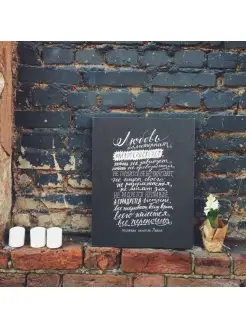 Любовь
долготерпит,
милосердствует,
любовь не завидует,
любовь не превозносится,
не гордится, не бесчинствует,
не ищет своего,
не раздражается,
не мыслит зла,
не радуется неправде,
а сорадуется истине,
все покрывает, всему верит,
всего надеется,
все переносит.